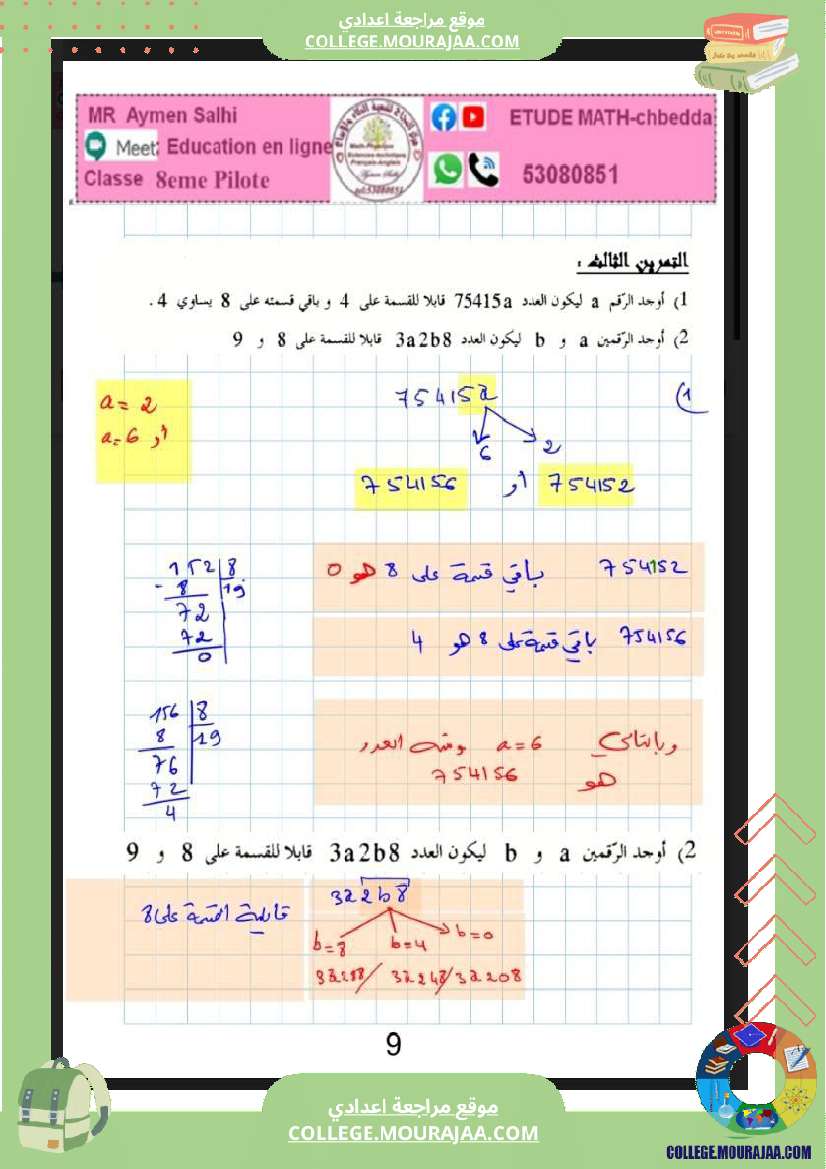 موقع مراجعة اعدادي
COLLEGE.MOURAJAA.COM
MR Aymen Salhi
ETUDE MATH-chbedda
Meet: Education en ligne
Classe 8eme Pilote
53080851
التمرين الثالث :
1) أوجد الرّقم a ليكون العدد 75415a قابلا للقسمة على 4 و باقي قسمته على 8 يساوي 4 .
2) أوجد الرّقمين a و b ليكون العدد 3a2b8 قابلا للقسمة على 8 و 9
1)
75415a
6 2
754152 أو 754156
a = 2
أو a=6
754152 باقي قسمة على 8 هو 0
152 8
- 8 19
72
72
0
754156 باقي قسمة على 8 هو 4
156 8
8 19
76
72
4
وبالتالي a=6 ومنه العدد
هو 754156
2) أوجد الرّقمين a و b ليكون العدد 3a2b8 قابلا للقسمة على 8 و 9
قابلية القسمة على 8
3a2b8
b=8 b=4 b=0
3a288 / 3a248 / 3a208
9
موقع مراجعة اعدادي
COLLEGE.MOURAJAA.COM
COLLEGE.MOURAJAA.COM